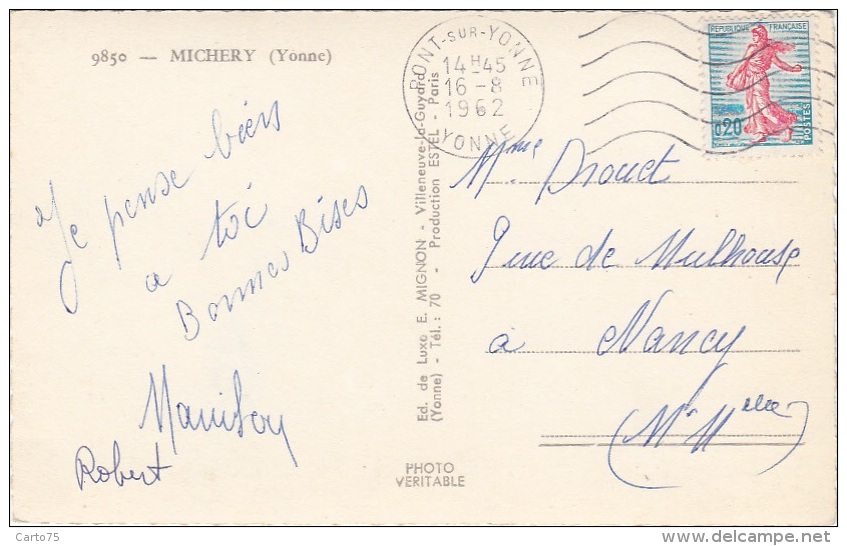 9850 — MICHERY (Yonne)
Je pense bien
a toi
Bonnes Bises
Robert
Ed. de Luxe E. MIGNON - Villeneuve-la-Guyard
(Yonne) - Tél. : 70 - Production ESTEL - Paris
PHOTO
VERITABLE
PONT-SUR-YONNE
14H45
16-8
1962
YONNE
REPUBLIQUE FRANÇAISE
0,20
POSTES
Mme Drouet
9 rue de Mulhouse
à Nancy
(Mthe Mlle)
Carto75
www.delcampe.net